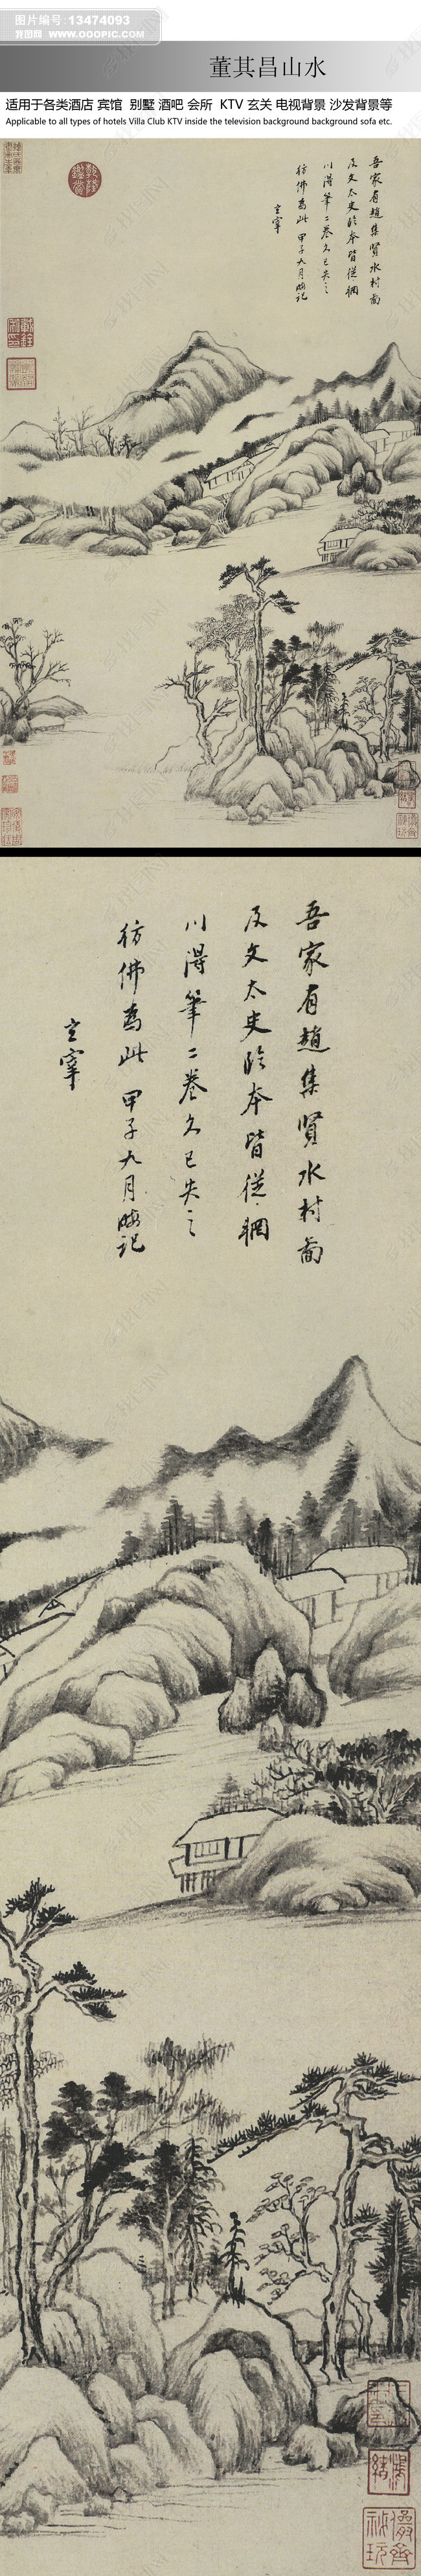 图片编号:13474093
我图网 WWW.OOOPIC.COM
董其昌山水
适用于各类酒店 宾馆 别墅 酒吧 会所 KTV 玄关 电视背景 沙发背景等
Applicable to all types of hotels Villa Club KTV inside the television background background sofa etc.
吾家有趙集賢水村圖
及文太史臨本皆從輞
川得筆二卷久已失之
彷彿為此甲子九月晦記
玄宰
吾家有趙集賢水村圖
及文太史臨本皆從輞
川得筆二卷久已失之
彷彿為此甲子九月晦記
玄宰